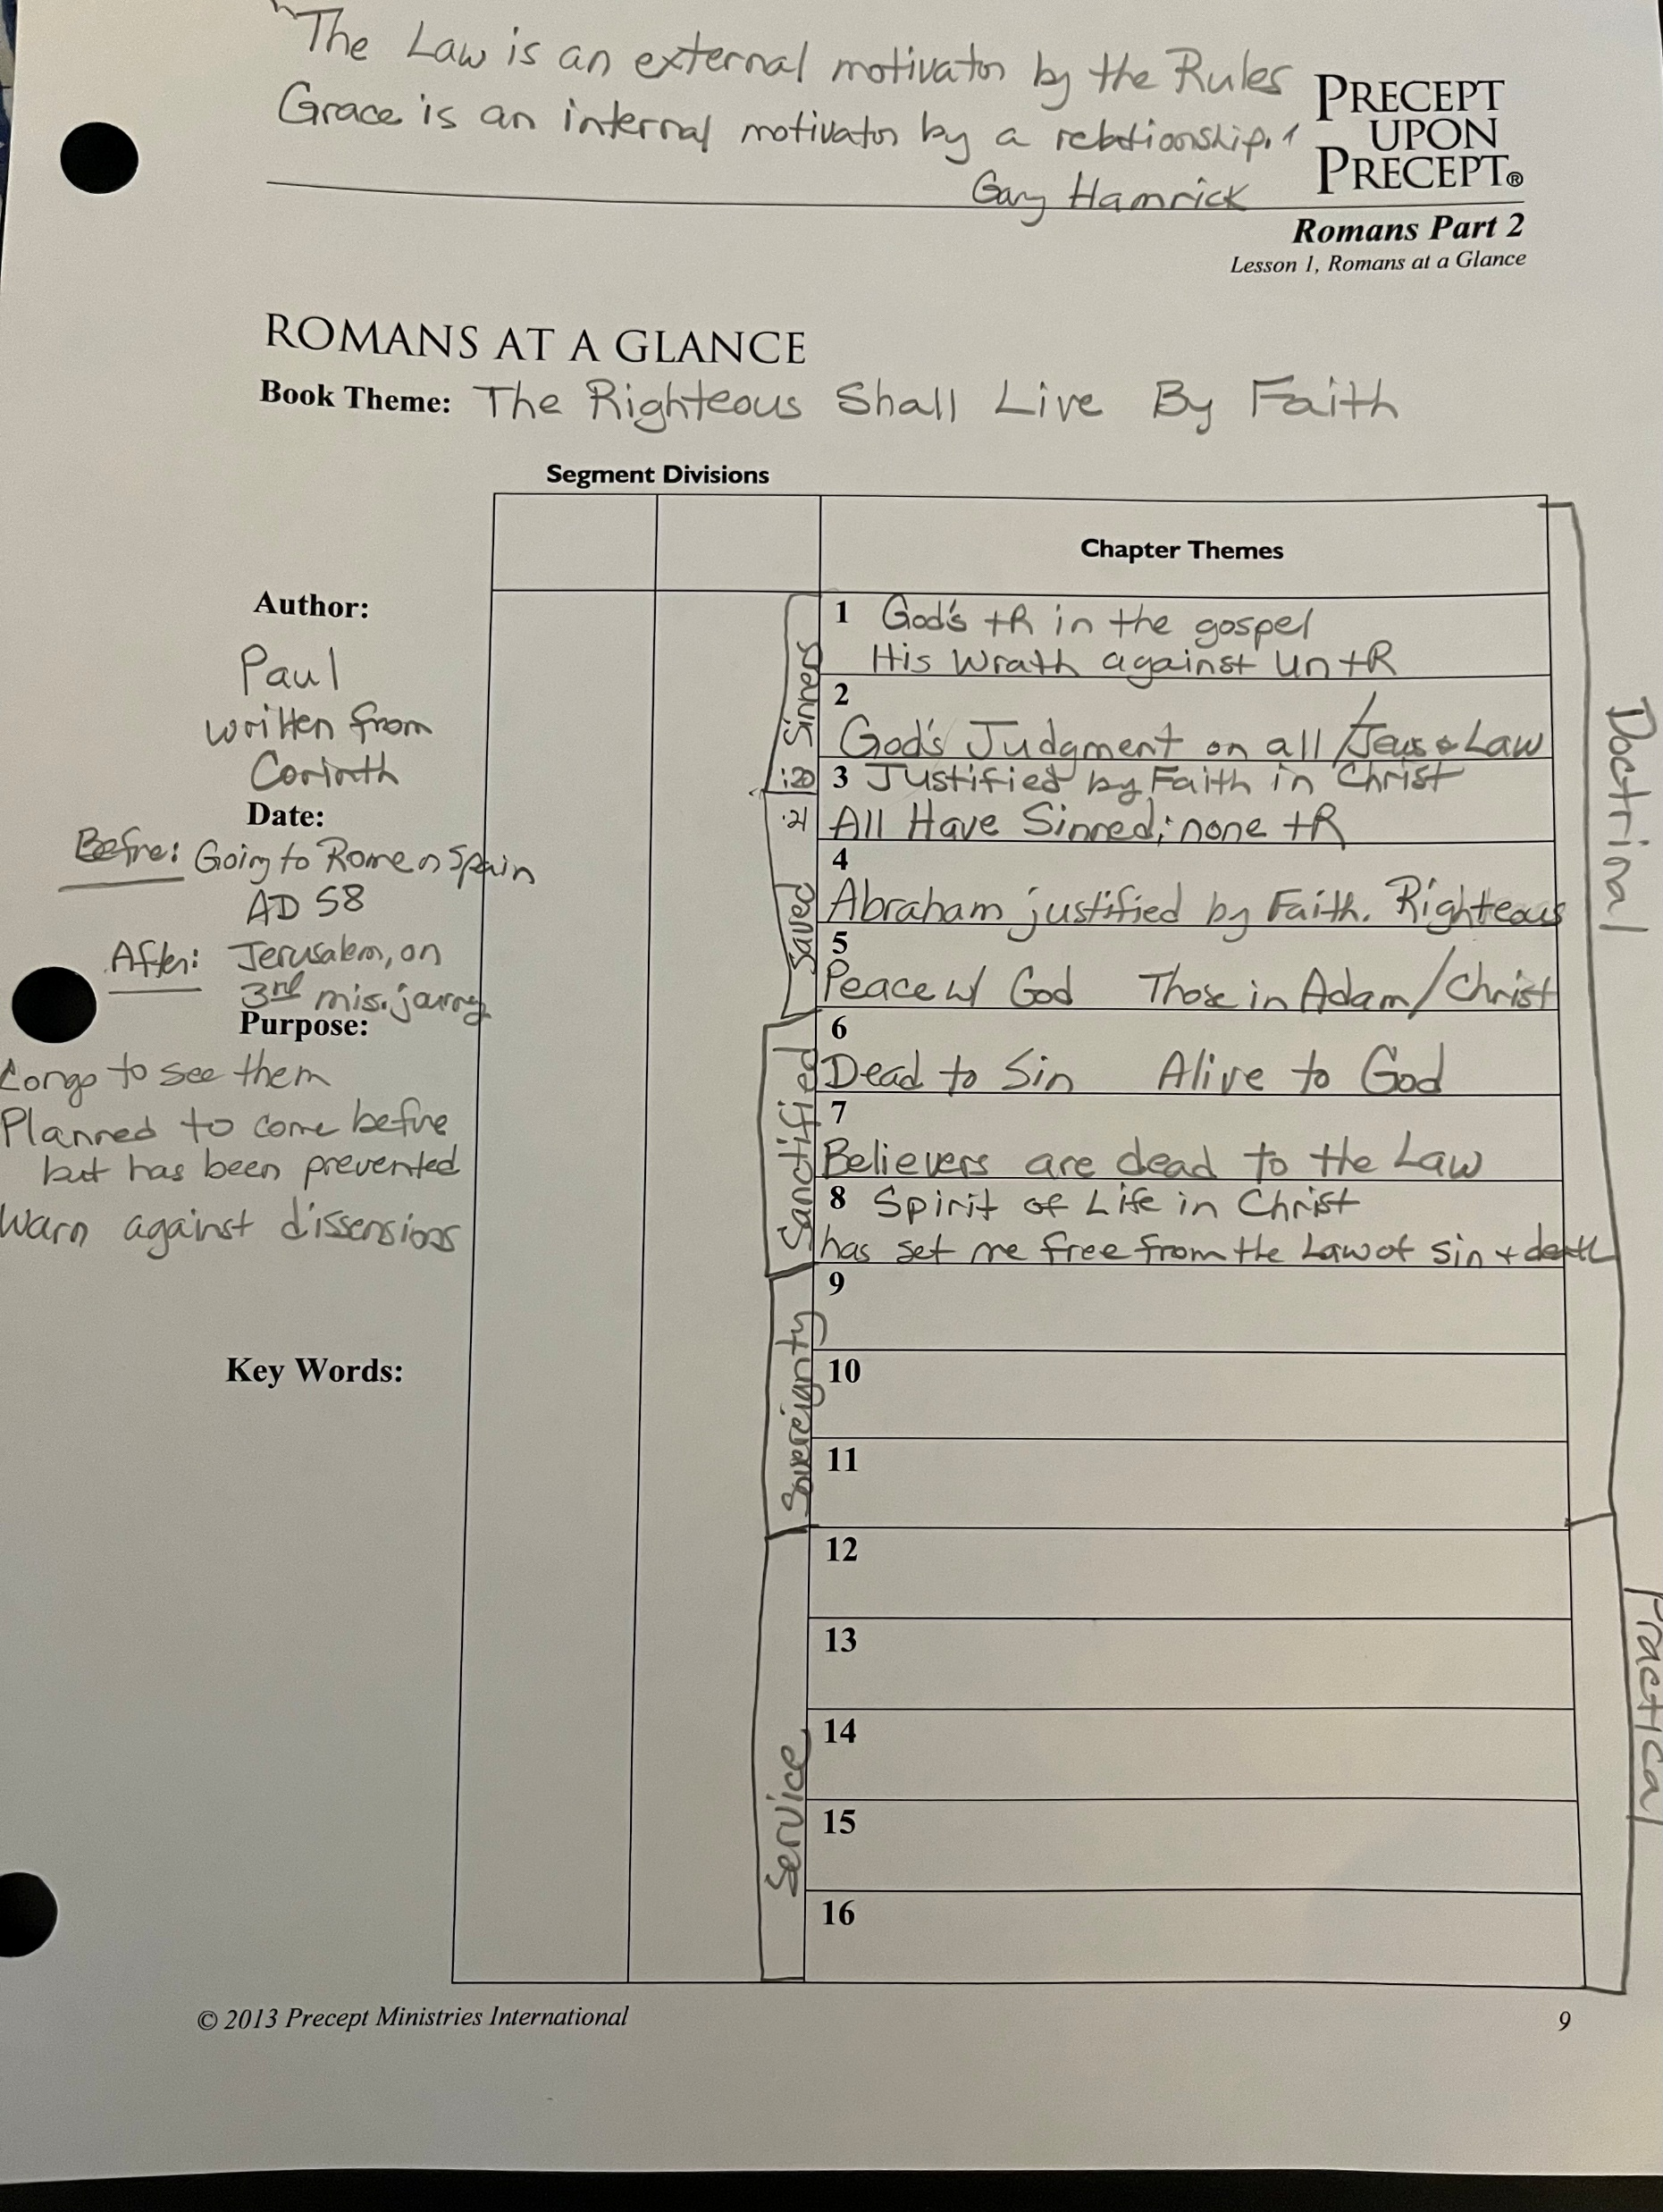 "The Law is an external motivator by the Rules
Grace is an internal motivator by a relationship."
Gary Hamrick
PRECEPT
UPON
PRECEPT®
Romans Part 2
Lesson 1, Romans at a Glance
ROMANS AT A GLANCE
Book Theme: The Righteous Shall Live By Faith
Segment Divisions
Chapter Themes
Author:
Paul
written from
Corinth
Date:
Before: Going to Rome n Spain
AD 58
After: Jerusalem, on
3rd mis. journey
Purpose:
Longs to see them
Planned to come before
but has been prevented
Warn against dissensions
Key Words:
Sinners
:20
:21
Saved
Sanctified
Sovereignty
Service
1 God's +R in the gospel
His Wrath against un+R
2
God's Judgment on all / Jews & Law
3 Justified by Faith in Christ
All Have Sinned; none +R
4
Abraham justified by Faith. Righteous
5
Peace w/ God Those in Adam/Christ
6
Dead to Sin Alive to God
7
Believers are dead to the Law
8 Spirit of Life in Christ
has set me free from the Law of sin + death
9
10
11
12
13
14
15
16
Doctrinal
Practical
© 2013 Precept Ministries International
9